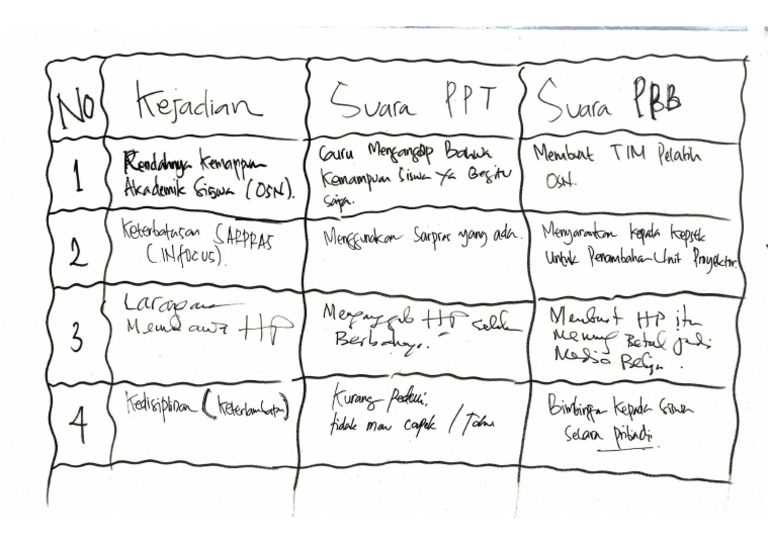 No
Kejadian
Suara PPT
Suara PBB
1
Rendahnya Kemampuan
Akademik Siswa (OSN).
Guru Menganggap Bahwa
Kemampuan Siswa Ya Begitu
saja.
Membuat TIM Pelatih
OSN.
2
Keterbatasan SARPRAS
(INfocus).
Menggunakan Sarpras yang ada.
Menyarankan Kepada Kepsek
Untuk Penambahan Unit Proyektor.
3
Larangan
Membawa HP
Menganggab HP selalu
Berbahaya.
Membuat HP itu
Memang Betul jadi
Media Belajar.
4
Kedisiplinan (Keterlambatan)
Kurang Peduli,
tidak mau capek / Tahu
Bimbingan Kepada Siswa
secara pribadi.